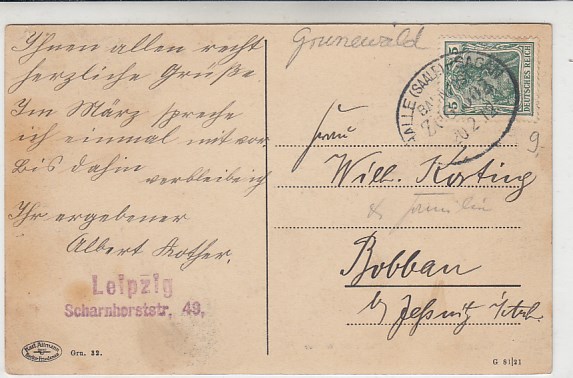 Ihnen allen recht
herzliche Grüße
Im März spreche
ich einmal mit vor
Bis dahin
verbleibe ich
Ihr ergebener
Albert Kother.
Leipzig
Scharnhorststr. 49,
Gru. 32.
Grunewald
5 5
DEUTSCHES REICH
HALLE (SAALE) - SAGAN
BAHNPOST
20 2 12
9.
Frau
Wilh. Korting
& Familie
Bobbau
by Jeßnitz
G 81|21